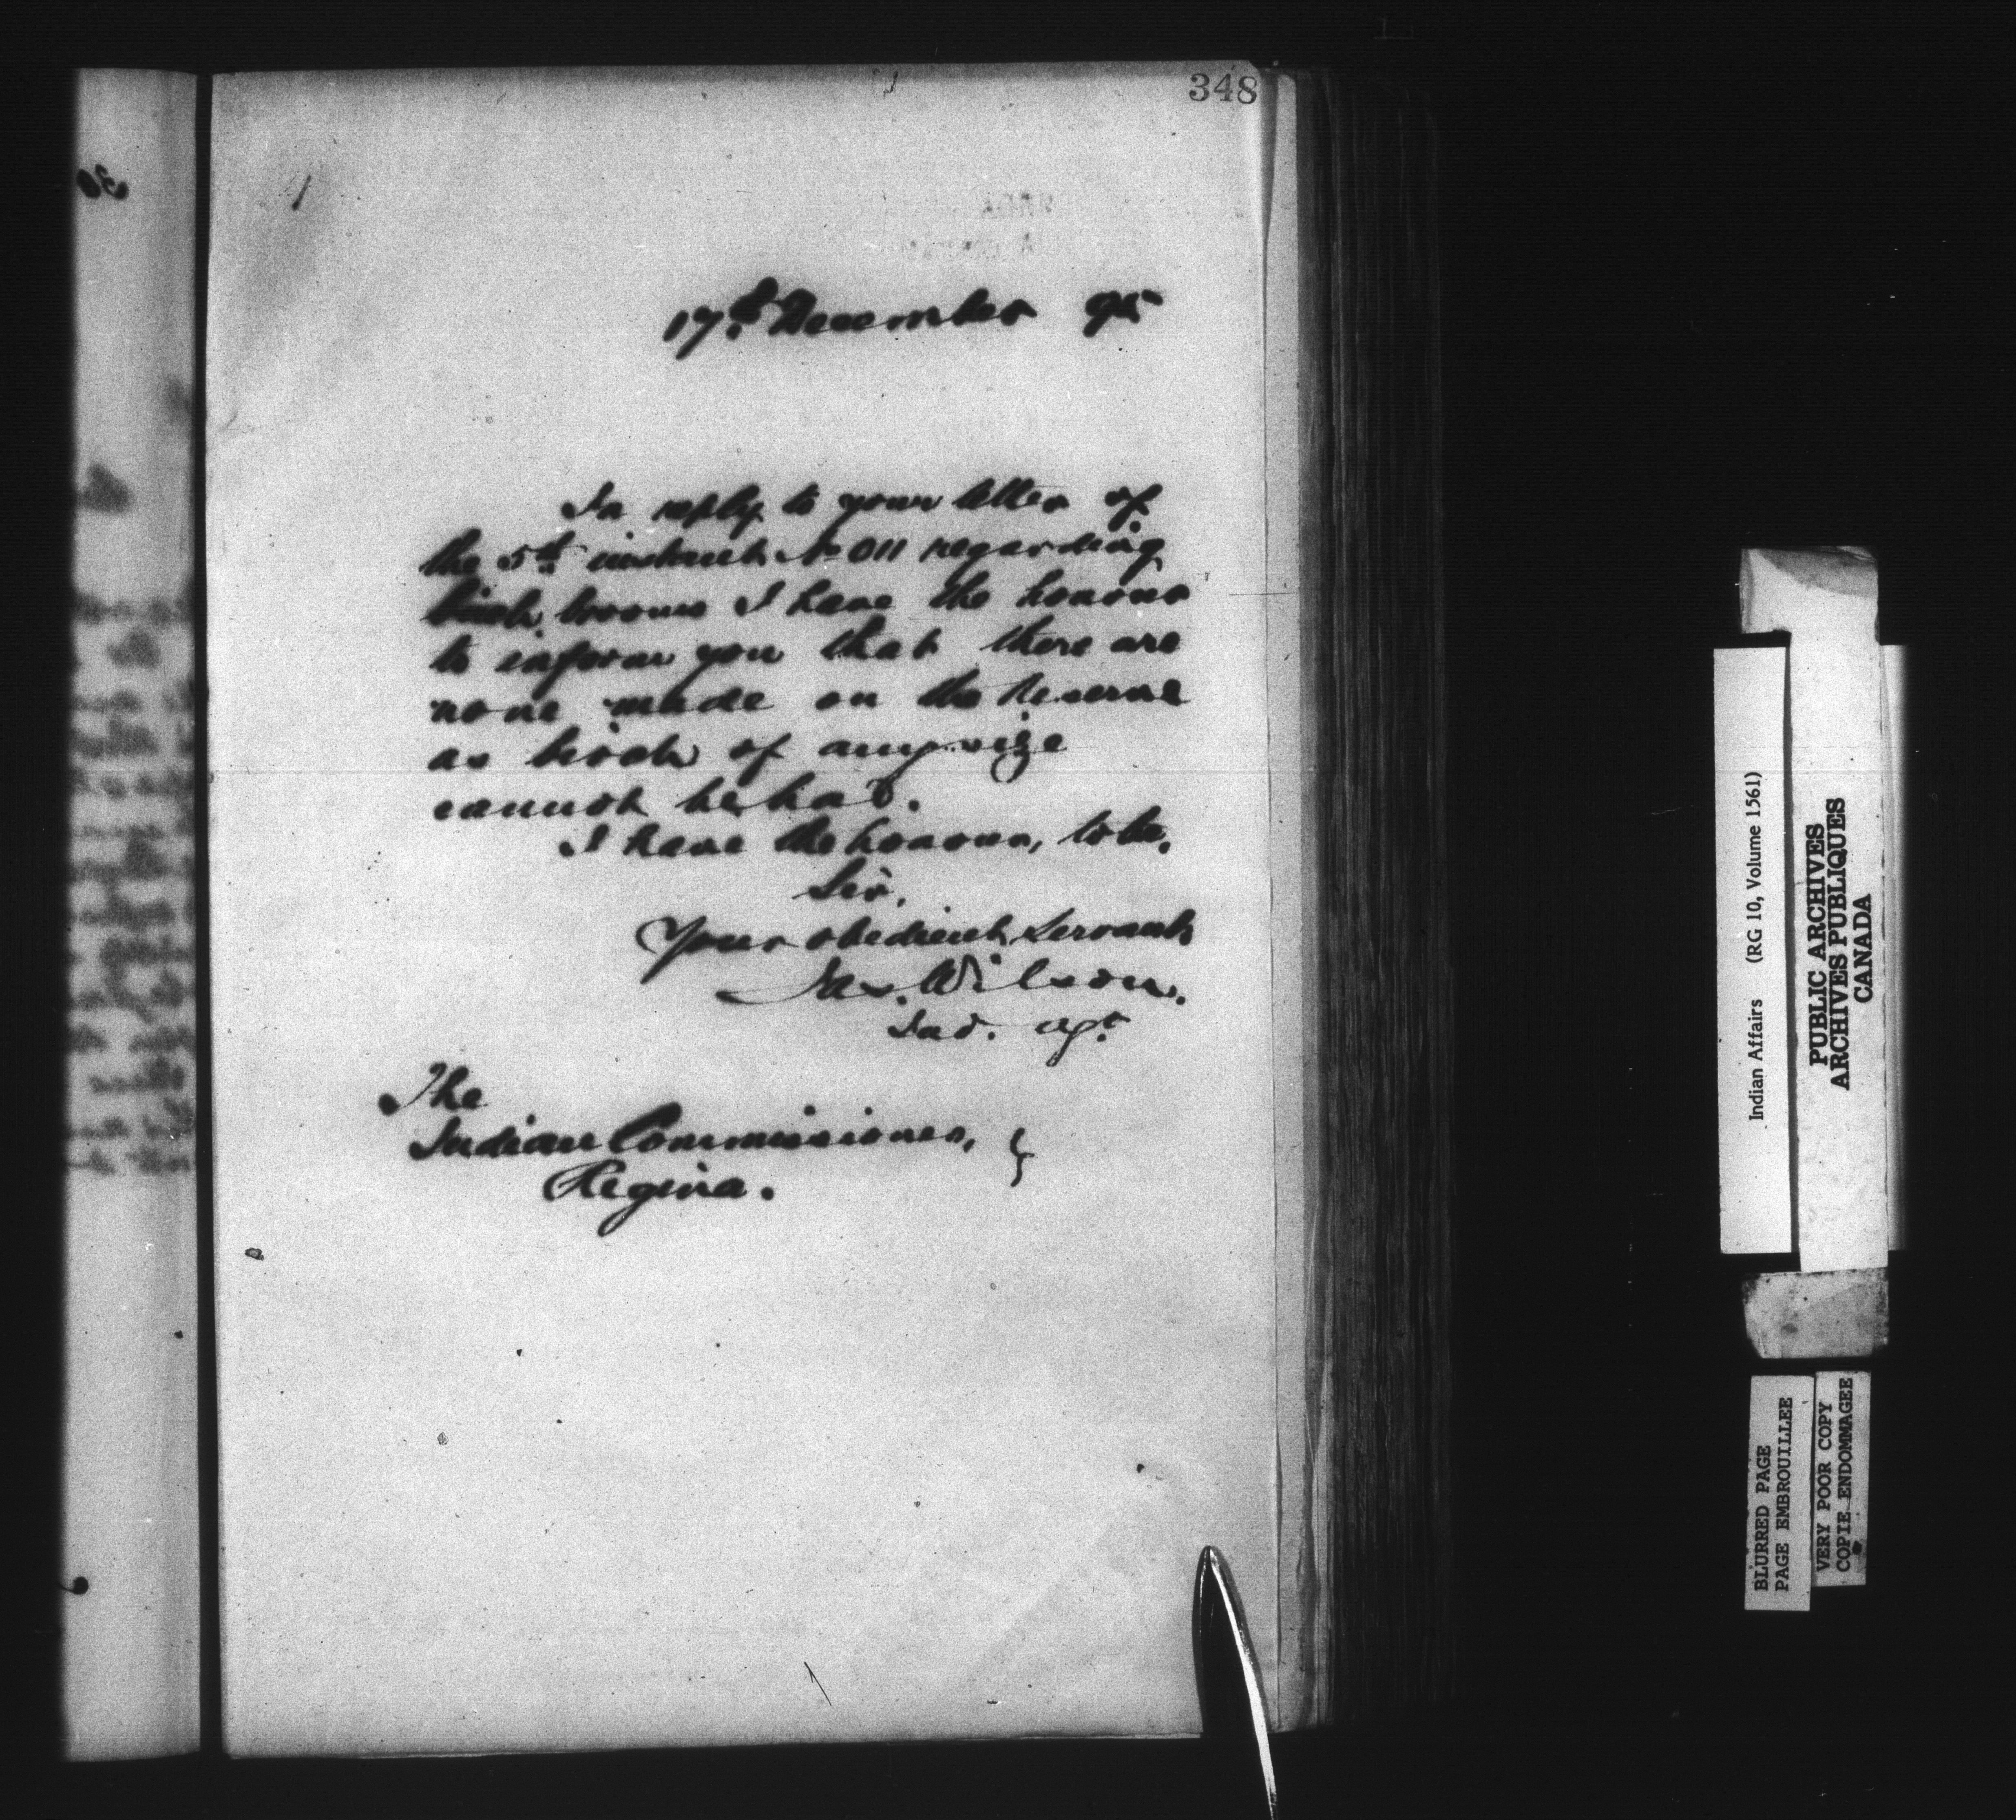 348
17th December 95
In reply to your letter of
the 5th instant No 011 regarding
birch brooms I have the honour
to inform you that there are
none made on the Reserve
as birch of any size
cannot be had.
I have the honour, to be,
Sir,
Your obedient Servant
Jas. Wilson.
Ind. Agt.
The
Indian Commissioner,
Regina.
Indian Affairs (RG 10, Volume 1561)
PUBLIC ARCHIVES
ARCHIVES PUBLIQUES
CANADA
BLURRED PAGE
PAGE EMBROUILLEE
VERY POOR COPY
COPIE ENDOMMAGEE